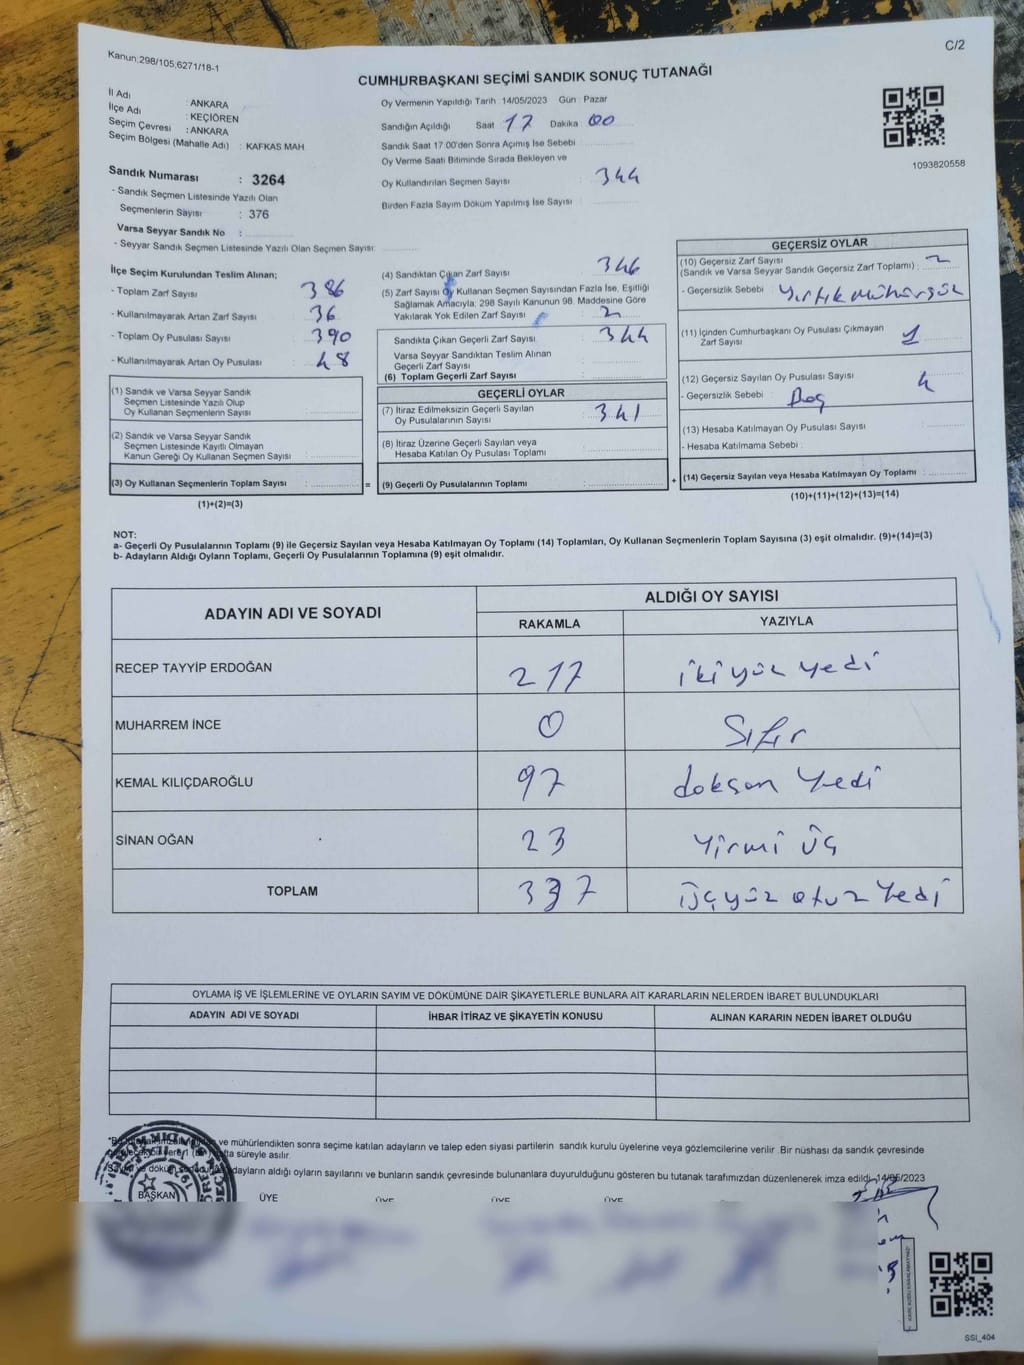 Kanun;298/105,6271/18-1
C/2
CUMHURBAŞKANI SEÇİMİ SANDIK SONUÇ TUTANAĞI
İl Adı : ANKARA
İlçe Adı : KEÇİÖREN
Seçim Çevresi : ANKARA
Seçim Bölgesi (Mahalle Adı) : KAFKAS MAH
Oy Vermenin Yapıldığı Tarih :14/05/2023 Gün : Pazar
Sandığın Açıldığı Saat 17 Dakika 00
Sandık Saat 17.00'den Sonra Açımış İse Sebebi
Oy Verme Saati Bitiminde Sırada Bekleyen ve
Oy Kullandırılan Seçmen Sayısı 344
Birden Fazla Sayım Döküm Yapılmış İse Sayısı
1093820558
Sandık Numarası : 3264
- Sandık Seçmen Listesinde Yazılı Olan
Seçmenlerin Sayısı : 376
Varsa Seyyar Sandık No :
- Seyyar Sandık Seçmen Listesinde Yazılı Olan Seçmen Sayısı:
İlçe Seçim Kurulundan Teslim Alınan;
- Toplam Zarf Sayısı 386
- Kullanılmayarak Artan Zarf Sayısı 36
- Toplam Oy Pusulası Sayısı 390
- Kullanılmayarak Artan Oy Pusulası 48
(1) Sandık ve Varsa Seyyar Sandık
Seçmen Listesinde Yazılı Olup
Oy Kullanan Seçmenlerin Sayısı
(2) Sandık ve Varsa Seyyar Sandık
Seçmen Listesinde Kayıtlı Olmayan
Kanun Gereği Oy Kullanan Seçmen Sayısı
(3) Oy Kullanan Seçmenlerin Toplam Sayısı =
(1)+(2)=(3)
(4) Sandıktan Çıkan Zarf Sayısı 346
(5) Zarf Sayısı Oy Kullanan Seçmen Sayısından Fazla İse, Eşitliği
Sağlamak Amacıyla, 298 Sayılı Kanunun 98. Maddesine Göre
Yakılarak Yok Edilen Zarf Sayısı 2
Sandıkta Çıkan Geçerli Zarf Sayısı 344
Varsa Seyyar Sandıktan Teslim Alınan
Geçerli Zarf Sayısı
(6) Toplam Geçerli Zarf Sayısı
GEÇERLİ OYLAR
(7) İtiraz Edilmeksizin Geçerli Sayılan
Oy Pusulalarının Sayısı 341
(8) İtiraz Üzerine Geçerli Sayılan veya
Hesaba Katılan Oy Pusulası Toplamı
(9) Geçerli Oy Pusulalarının Toplamı +
GEÇERSİZ OYLAR
(10) Geçersiz Zarf Sayısı
(Sandık ve Varsa Seyyar Sandık Geçersiz Zarf Toplamı) : 2
- Geçersizlik Sebebi : Yırtık mühürsüz
(11) İçinden Cumhurbaşkanı Oy Pusulası Çıkmayan
Zarf Sayısı 1
(12) Geçersiz Sayılan Oy Pusulası Sayısı 4
- Geçersizlik Sebebi : Boş
(13) Hesaba Katılmayan Oy Pusulası Sayısı
- Hesaba Katılmama Sebebi :
(14) Geçersiz Sayılan veya Hesaba Katılmayan Oy Toplamı :
(10)+(11)+(12)+(13)=(14)
NOT:
a- Geçerli Oy Pusulalarının Toplamı (9) ile Geçersiz Sayılan veya Hesaba Katılmayan Oy Toplamı (14) Toplamları, Oy Kullanan Seçmenlerin Toplam Sayısına (3) eşit olmalıdır. (9)+(14)=(3)
b- Adayların Aldığı Oyların Toplamı, Geçerli Oy Pusulalarının Toplamına (9) eşit olmalıdır.
ADAYIN ADI VE SOYADI ALDIĞI OY SAYISI
RAKAMLA YAZIYLA
RECEP TAYYİP ERDOĞAN 217 iki yüz yedi
MUHARREM İNCE 0 Sıfır
KEMAL KILIÇDAROĞLU 97 doksan yedi
SİNAN OĞAN 23 Yirmi üç
TOPLAM 337 üçyüz otuz Yedi
OYLAMA İŞ VE İŞLEMLERİNE VE OYLARIN SAYIM VE DÖKÜMÜNE DAİR ŞİKAYETLERLE BUNLARA AİT KARARLARIN NELERDEN İBARET BULUNDUKLARI
ADAYIN ADI VE SOYADI İHBAR İTİRAZ VE ŞİKAYETİN KONUSU ALINAN KARARIN NEDEN İBARET OLDUĞU
ve mühürlendikten sonra seçime katılan adayların ve talep eden siyasi partilerin sandık kurulu üyelerine veya gözlemcilerine verilir .Bir nüshası da sandık çevresinde
süreyle asılır.
adayların aldığı oyların sayılarını ve bunların sandık çevresinde bulunanlara duyurulduğunu gösteren bu tutanak tarafımızdan düzenlenerek imza edildi. 14/05/2023
BAŞKAN ÜYE ÜYE ÜYE ÜYE
SSI_404